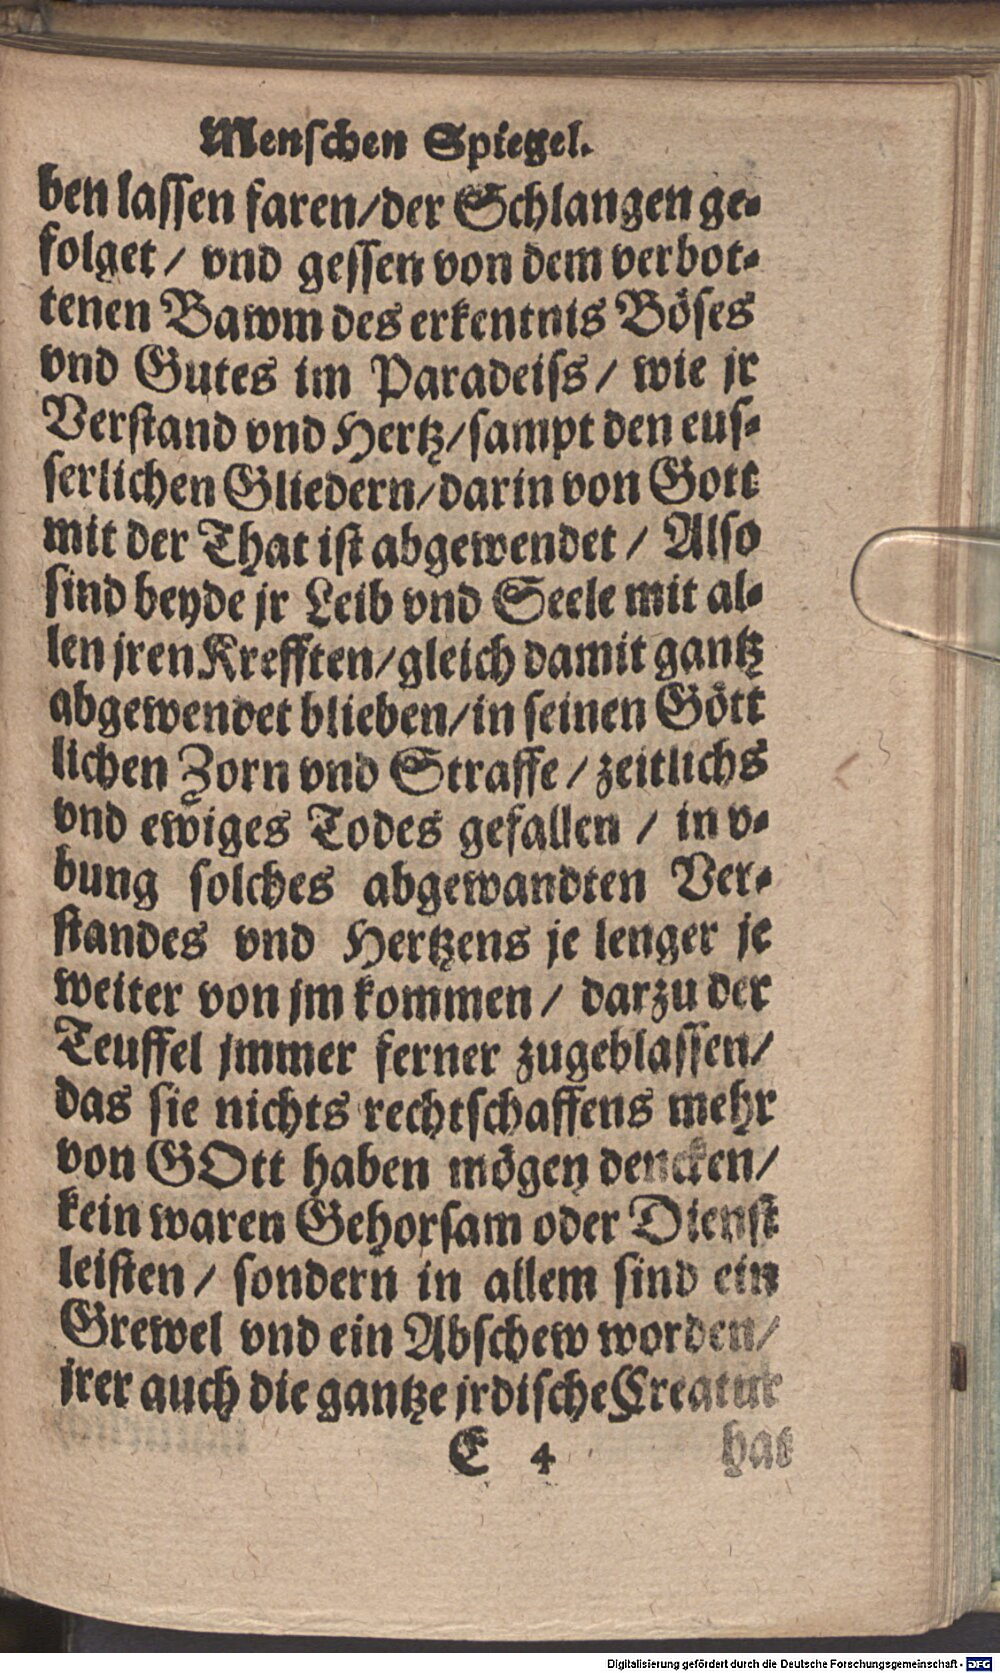 Menschen Spiegel.
ben lassen faren/der Schlangen ge-
folget / vnd gessen von dem verbot-
tenen Bawm des erkentnis Böses
vnd Gutes im Paradeiss / wie jr
Verstand vnd Hertz/sampt den eus-
serlichen Gliedern/darin von Gott
mit der That ist abgewendet / Also
sind beyde jr Leib vnd Seele mit al-
len jren Krefften/gleich damit gantz
abgewendet blieben/in seinen Gött
lichen Zorn vnd Straffe / zeitlichs
vnd ewiges Todes gefallen / in v-
bung solches abgewandten Ver-
standes vnd Hertzens je lenger je
weiter von jm kommen / darzu der
Teuffel jmmer ferner zugeblassen/
das sie nichts rechtschaffens mehr
von GOtt haben mögen dencken/
kein waren Gehorsam oder Dienst
leisten / sondern in allem sind ein
Grewel vnd ein Abschew worden/
jrer auch die gantze jrdische Creatur
E 4 hat
Digitalisierung gefördert durch die Deutsche Forschungsgemeinschaft - DFG